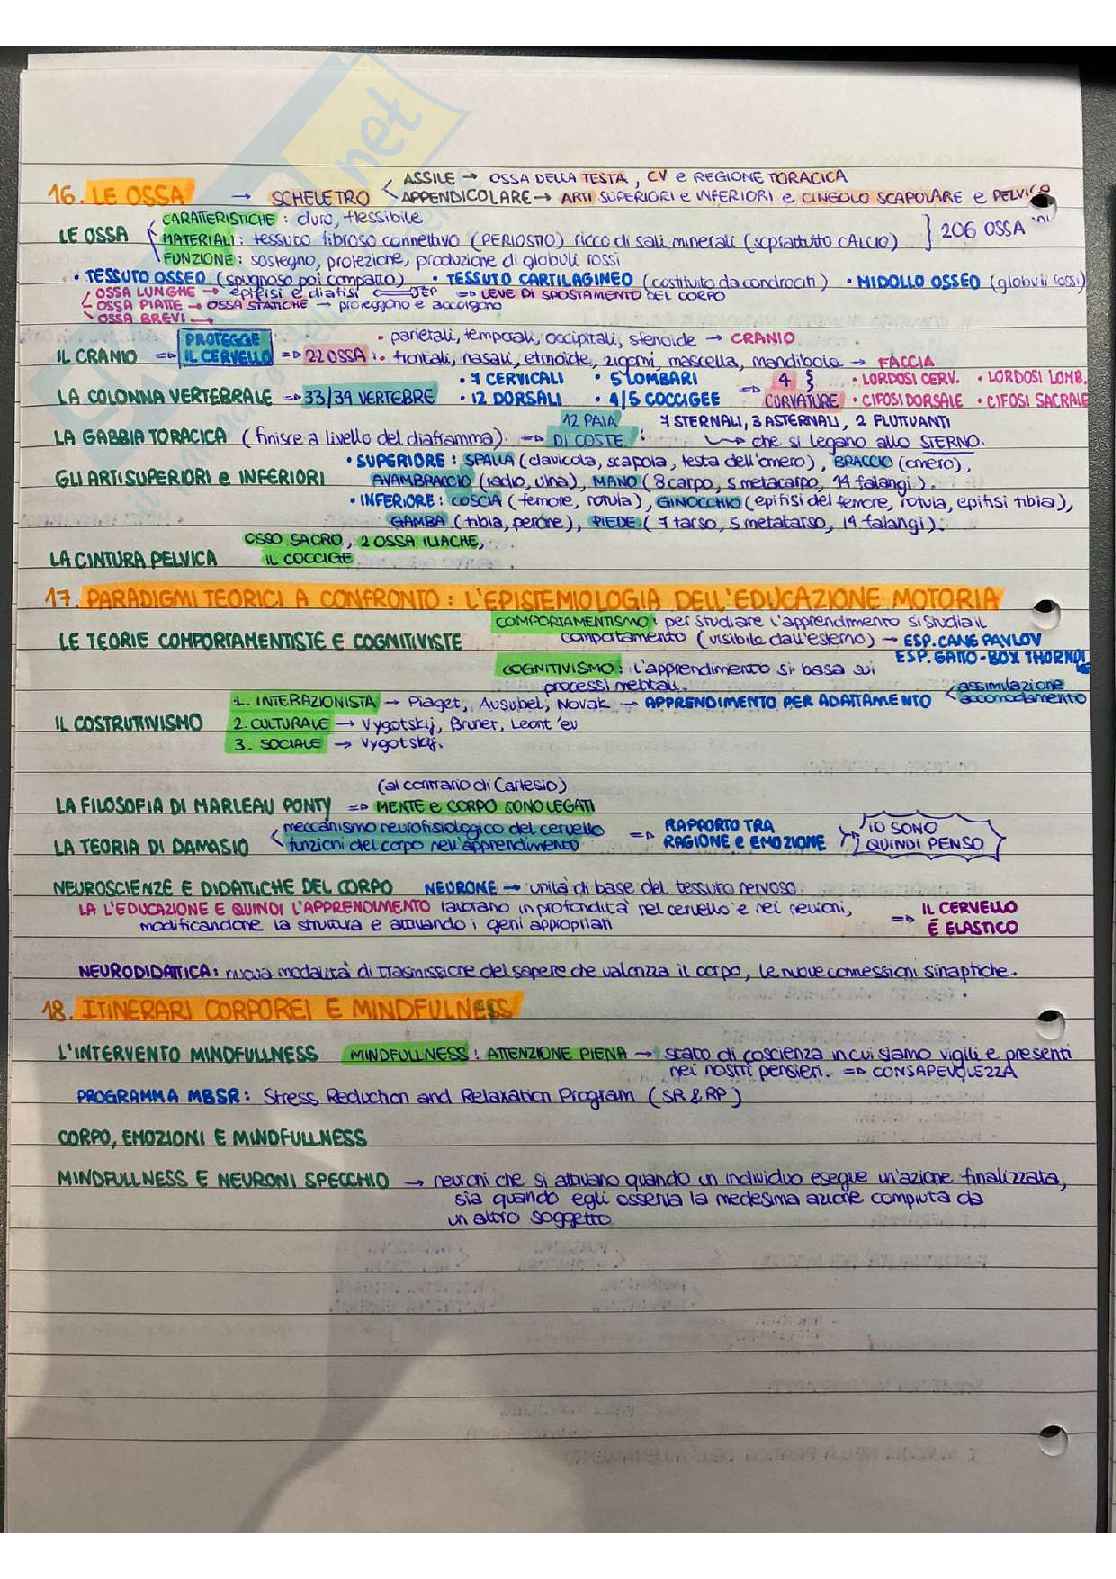 16. LE OSSA → SCHELETRO
ASSILE → OSSA DELLA TESTA, CV e REGIONE TORACICA
APPENDICOLARE → ARTI SUPERIORI e INFERIORI e CINGOLO SCAPOLARE e PELVICO
LE OSSA
CARATTERISTICHE : duro, flessibile
MATERIALI: tessuto fibroso connettivo (PERIOSTIO) ricco di sali minerali (sopratutto CALCIO)
FUNZIONE: sostegno, protezione, produzione di globuli rossi
206 OSSA
• TESSUTO OSSEO (spugnoso poi compatto) • TESSUTO CARTILAGINEO (costituito da condrociti) • MIDOLLO OSSEO (globuli rossi)
OSSA LUNGHE → epifisi e diafisi ⇒ LEVE DI SPOSTAMENTO DEL CORPO
OSSA PIATTE → OSSA STATICHE → proteggono e accolgono
OSSA BREVI →
IL CRANIO ⇒ PROTEGGE IL CERVELLO ⇒ 22 OSSA :
• parietali, temporali, occipitali, sfenoide → CRANIO
• frontali, nasali, etmoide, zigomi, mascella, mandibola → FACCIA
LA COLONNA VERTEBRALE ⇒ 33/34 VERTEBRE
• 7 CERVICALI • 5 LOMBARI
• 12 DORSALI • 4/5 COCCIGEE
⇒ 4 CURVATURE
• LORDOSI CERV. • LORDOSI LOMB.
• CIFOSI DORSALE • CIFOSI SACRALE
LA GABBIA TORACICA (finisce a livello del diaframma). ⇒ 12 PAIA DI COSTE :
7 STERNALI, 3 ASTERNALI, 2 FLUTTUANTI
→ che si legano allo STERNO.
GLI ARTI SUPERIORI e INFERIORI
• SUPERIORE : SPALLA (clavicola, scapola, testa dell'omero), BRACCIO (omero),
AVAMBRACCIO (radio, ulna), MANO (8 carpo, 5 metacarpo, 14 falangi).
• INFERIORE : COSCIA (femore, rotula), GINOCCHIO (epifisi del femore, rotula, epifisi tibia),
GAMBA (tibia, perone), PIEDE (7 tarso, 5 metatarso, 14 falangi).
LA CINTURA PELVICA
OSSO SACRO, 2 OSSA ILIACHE,
IL COCCIGE.
17. PARADIGMI TEORICI A CONFRONTO : L'EPISTEMIOLOGIA DELL'EDUCAZIONE MOTORIA
LE TEORIE COMPORTAMENTISTE E COGNITIVISTE
COMPORTAMENTISMO : per studiare l'apprendimento si studia il
comportamento (visibile dall'esterno) → ESP. CANE PAVLOV
ESP. GATTO-BOX
COGNITIVISMO : L'apprendimento si basa sui
processi mentali.
IL COSTRUTIVISMO
1. INTERAZIONISTA → Piaget, Ausubel, Novak → APPRENDIMENTO PER ADATTAMENTO
assimilazione
accomodamento
2. CULTURALE → Vygotskij, Bruner, Leont'ev
3. SOCIALE → Vygotskij.
(al contrario di Cartesio)
LA FILOSOFIA DI MARLEAU PONTY ⇒ MENTE e CORPO SONO LEGATI
LA TEORIA DI DAMASIO
meccanismo neurofisiologico del cervello
funzioni del corpo nell'apprendimento
⇒ RAPPORTO TRA
RAGIONE e EMOZIONE
IO SONO
QUINDI PENSO
NEUROSCIENZE E DIDATTICHE DEL CORPO NEURONE → unità di base del tessuto nervoso.
LA L'EDUCAZIONE E QUINDI L'APPRENDIMENTO lavorano in profondità nel cervello e nei neuroni,
modificandone la struttura e attivando i geni appropriati
⇒ IL CERVELLO
È ELASTICO
NEURODIDATTICA: nuova modalità di trasmissione del sapere che valorizza il corpo, le nuove connessioni sinaptiche.
18. ITINERARI CORPOREI E MINDFULNESS
L'INTERVENTO MINDFULLNESS MINDFULLNESS : ATTENZIONE PIENA → stato di coscienza in cui siamo vigili e presenti
nei nostri pensieri. ⇒ CONSAPEVOLEZZA
PROGRAMMA MBSR: Stress Reduction and Relaxation Program (SR&RP)
CORPO, EMOZIONI E MINDFULLNESS
MINDFULLNESS E NEURONI SPECCHIO → neuroni che si attivano quando un individuo esegue un'azione finalizzata,
sia quando egli osserva la medesima azione compiuta da
un altro soggetto